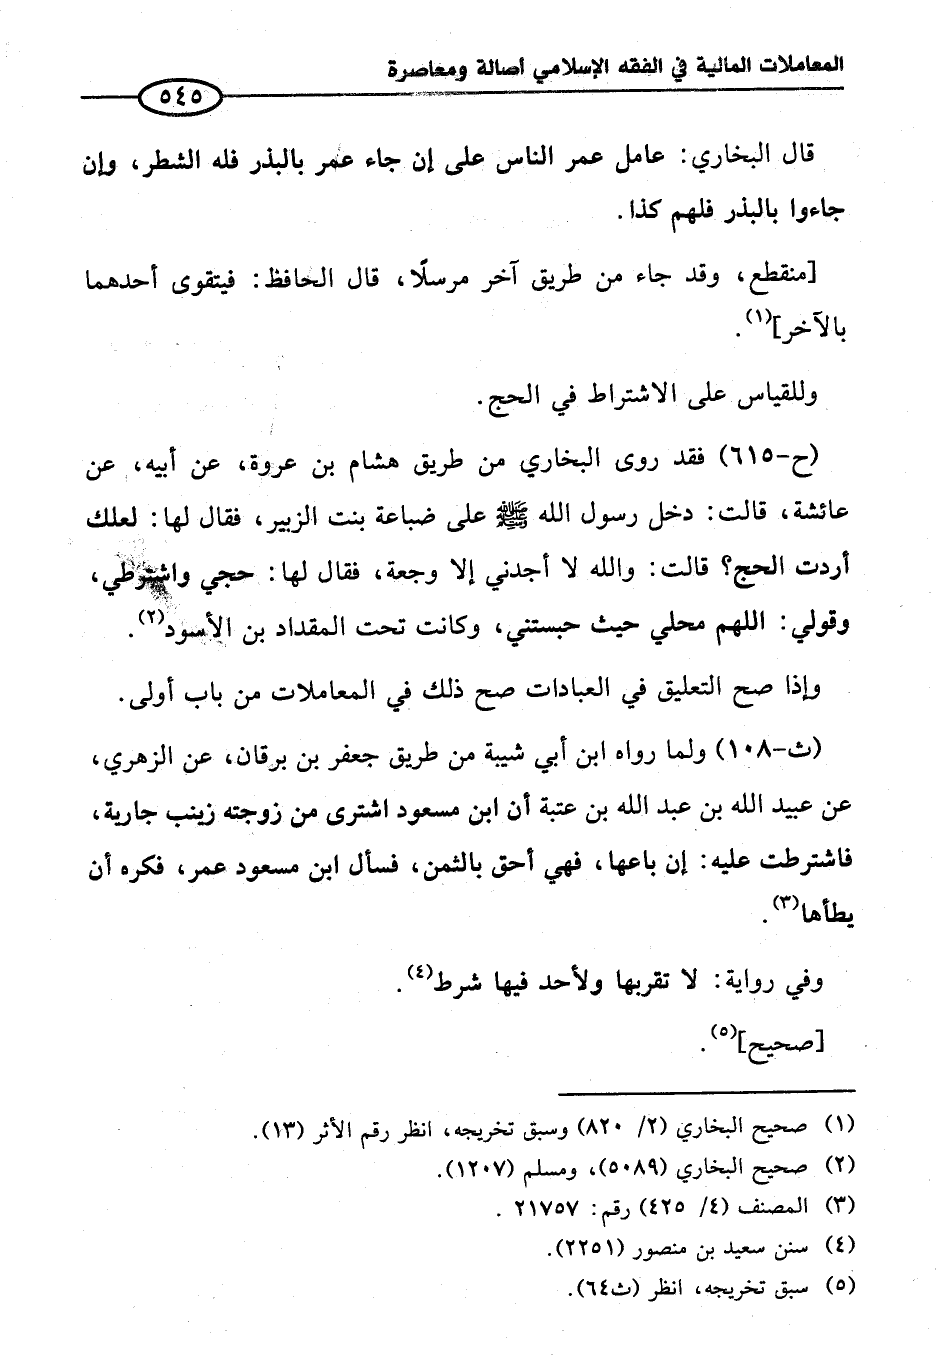 المعاملات المالية في الفقه الإسلامي أصالة ومعاصرة
٥٤٥
قال البخاري: عامل عمر الناس على إن جاء عمر بالبذر فله الشطر، وإن
جاءوا بالبذر فلهم كذا.
[منقطع، وقد جاء من طريق آخر مرسلًا، قال الحافظ: فيتقوى أحدهما
بالآخر](١).
وللقياس على الاشتراط في الحج.
(ح-٦١٥) فقد روى البخاري من طريق هشام بن عروة، عن أبيه، عن
عائشة، قالت: دخل رسول الله ﷺ على ضباعة بنت الزبير، فقال لها: لعلك
أردت الحج؟ قالت: والله لا أجدني إلا وجعة، فقال لها: حجي واشترطي،
وقولي: اللهم محلي حيث حبستني، وكانت تحت المقداد بن الأسود(٢).
وإذا صح التعليق في العبادات صح ذلك في المعاملات من باب أولى.
(ث-١٠٨) ولما رواه ابن أبي شيبة من طريق جعفر بن برقان، عن الزهري،
عن عبيد الله بن عبد الله بن عتبة أن ابن مسعود اشترى من زوجته زينب جارية،
فاشترطت عليه: إن باعها، فهي أحق بالثمن، فسأل ابن مسعود عمر، فكره أن
يطأها(٣).
وفي رواية: لا تقربها ولأحد فيها شرط(٤).
[صحيح](٥).
(١) صحيح البخاري (٢/ ٨٢٠) وسبق تخريجه، انظر رقم الأثر (١٣).
(٢) صحيح البخاري (٥٠٨٩)، ومسلم (١٢٠٧).
(٣) المصنف (٤/ ٤٢٥) رقم: ٢١٧٥٧ .
(٤) سنن سعيد بن منصور (٢٢٥١).
(٥) سبق تخريجه، انظر (ث٦٤).